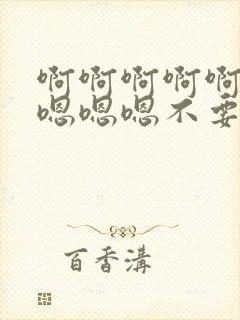 啊啊啊啊啊
嗯嗯嗯不要
百香溝